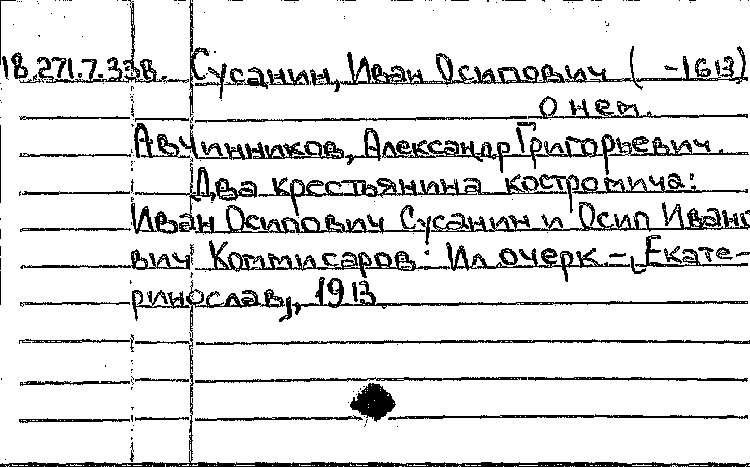 18.271.7.338. Сусанин, Иван Осипович ( -1613)
о нем.
Авчинников, Александр Григорьевич.
Два крестьянина костромича:
Иван Осипович Сусанин и Осип Ивано
вич Коммисаров: Ил. очерк. - [Екате-
ринослав], 1913.